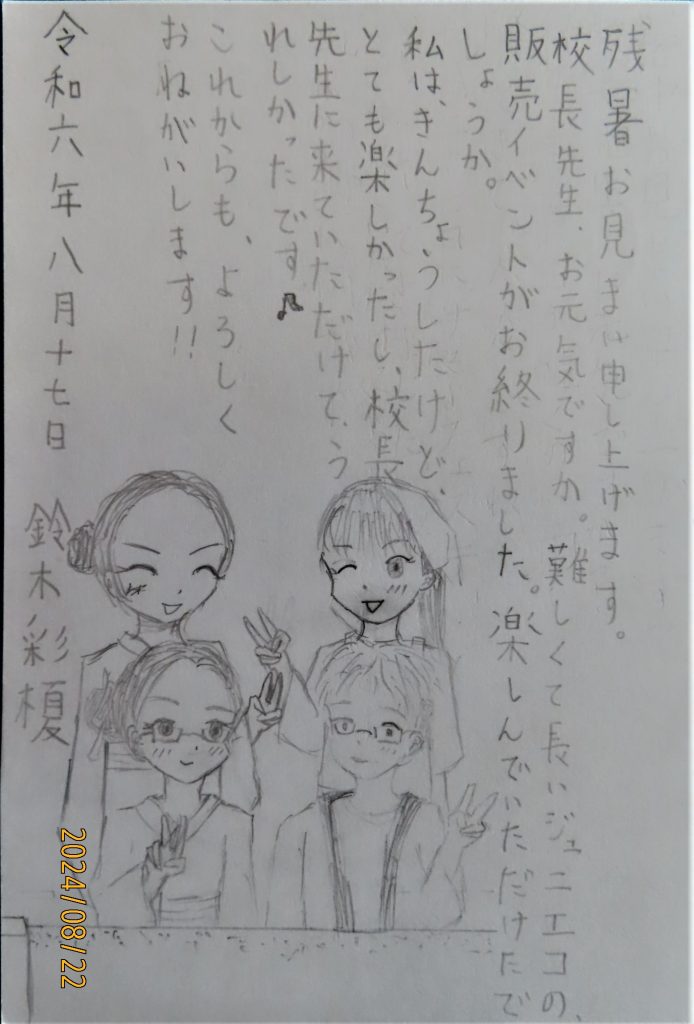 残暑お見まい申し上げます。
校長先生、お元気ですか。難しくて長いジュニエコの、
販売イベントがお終りました。楽しんでいただけたで
しょうか。
私は、きんちょうしたけど、
とても楽しかったし、校長
先生に来ていただけて、う
れしかったです♪
これからも、よろしく
おねがいします!!
令和六年八月十七日
鈴木彩榎
2024/08/22